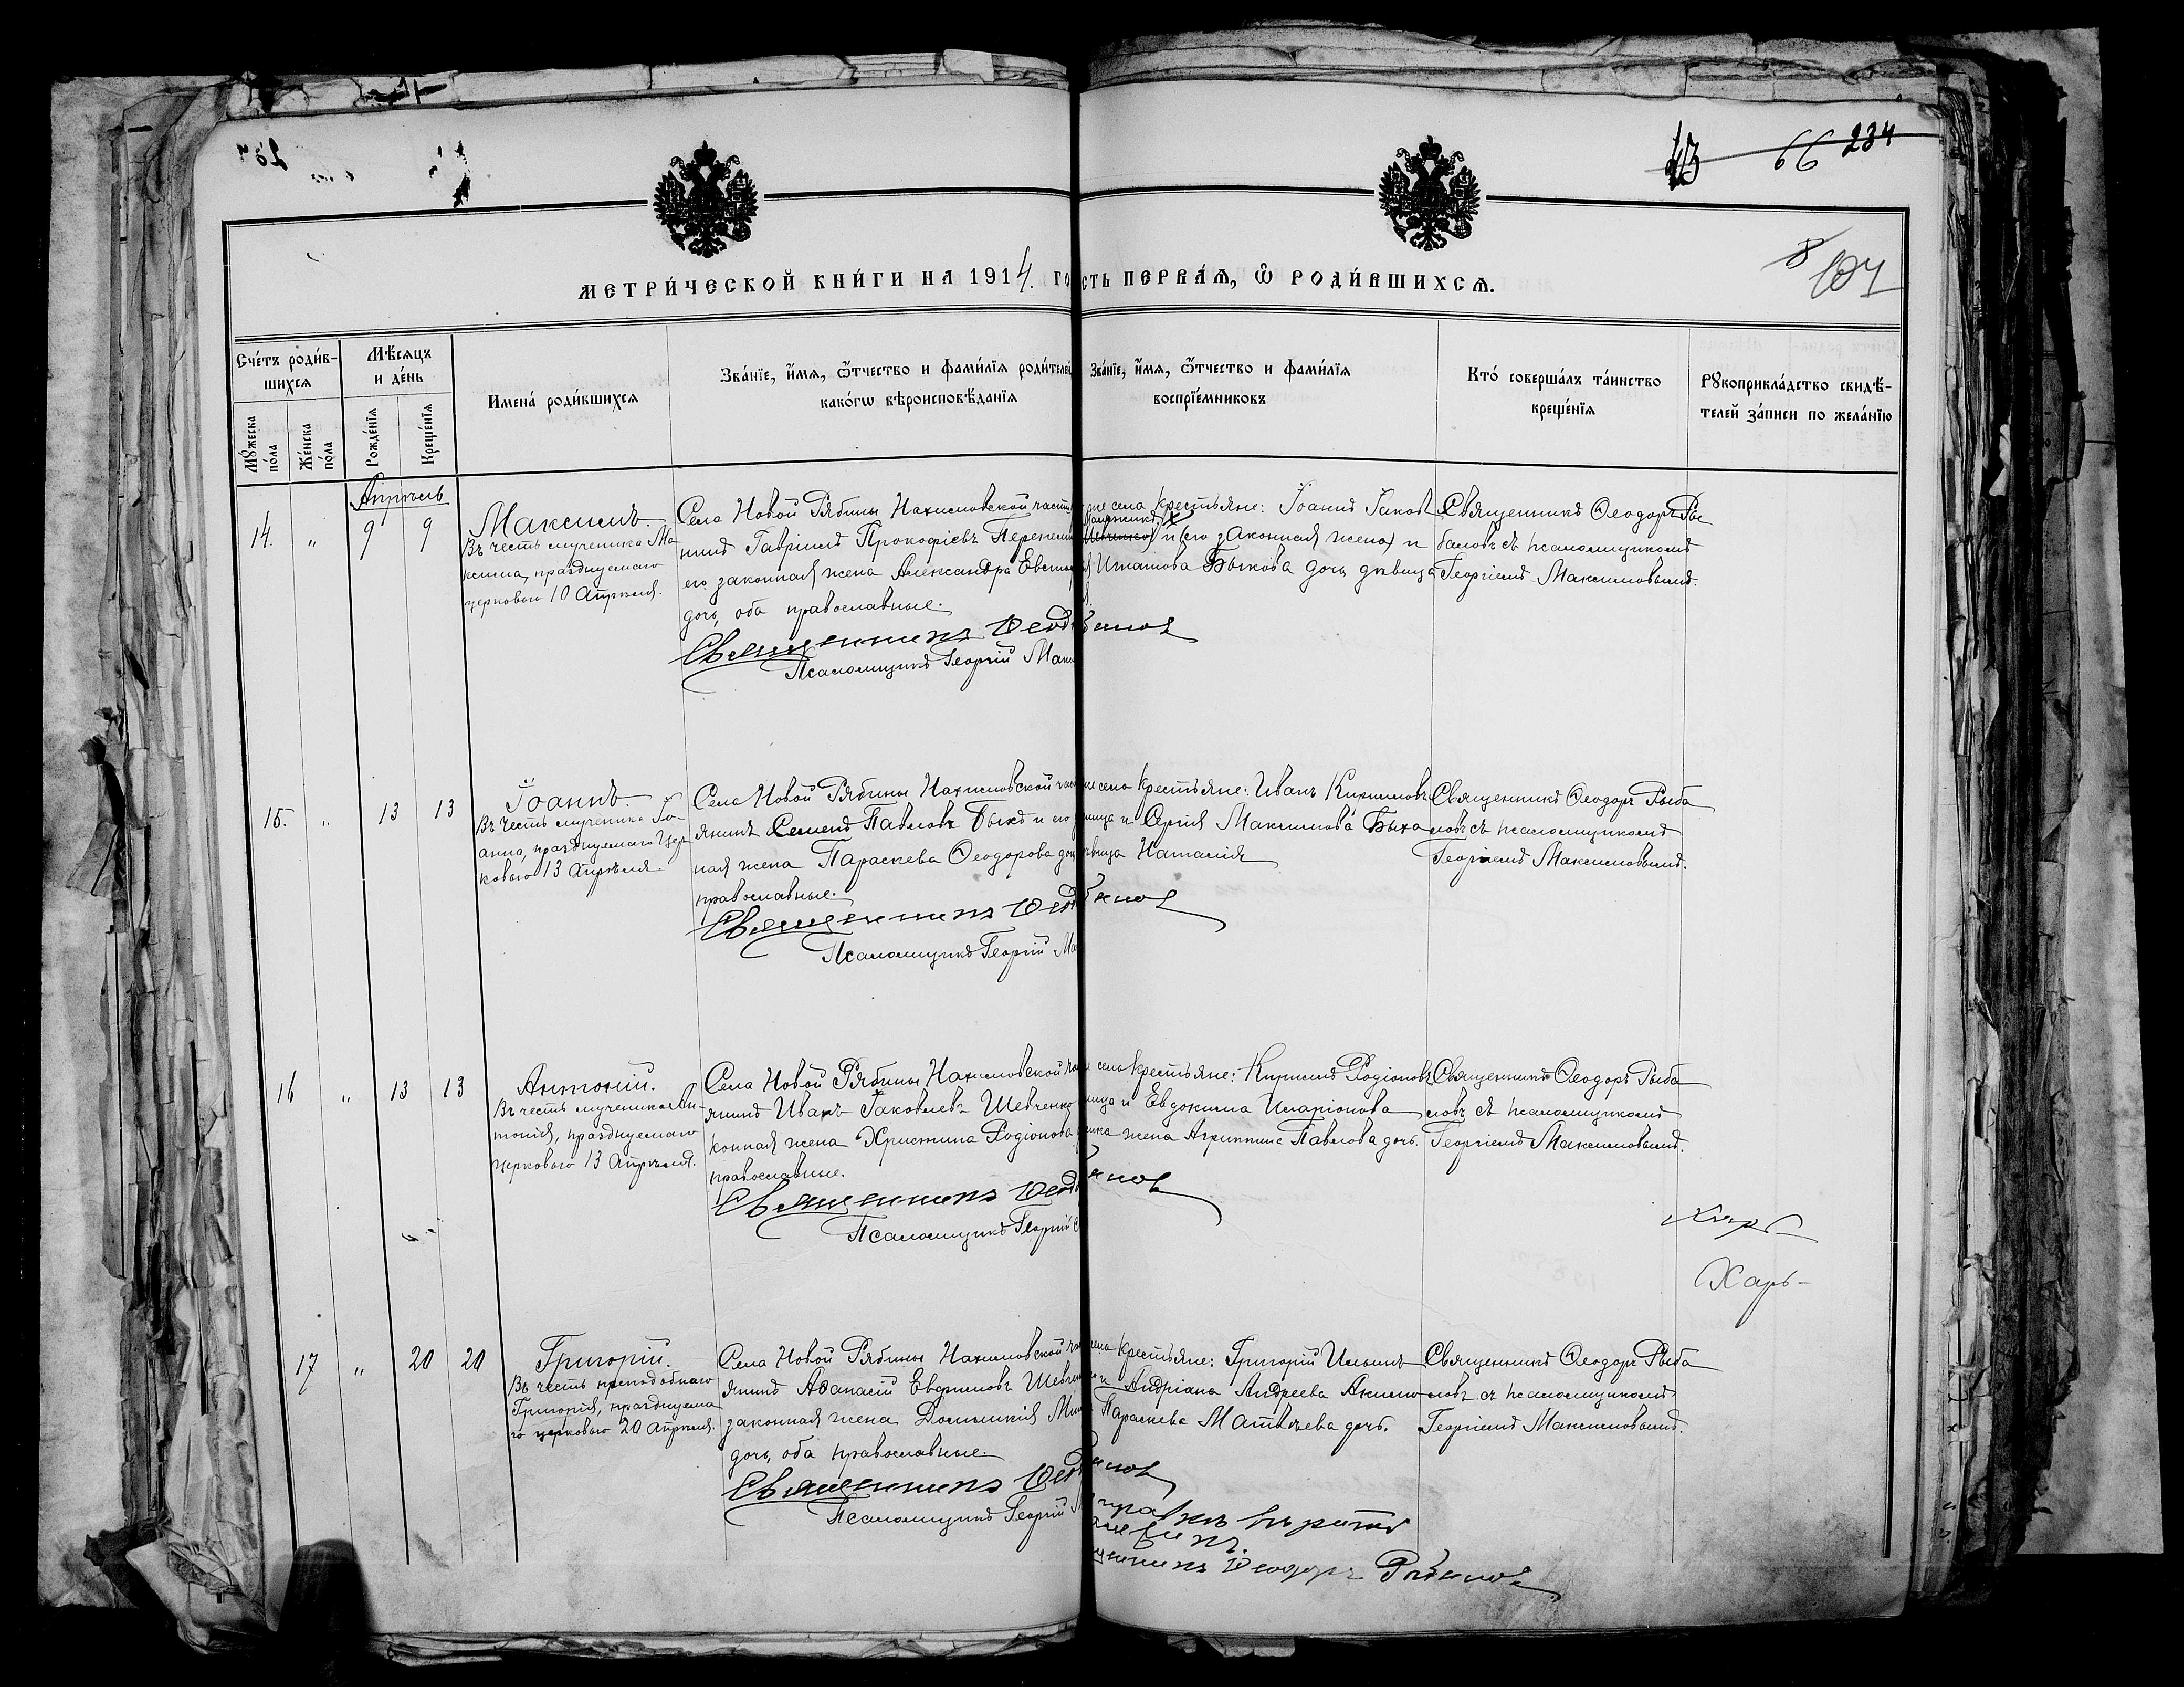 66 234
107
МЕТРИ́ЧЕСКОЙ КНИ́ГИ НА 1914. ГО СТЬ ПЕРВА́Ѧ, Ѿ РОДИ́ВШИХСѦ.
Сче́тъ роди́в-
шихсѧ
Мꙋ́жеска по́ла
Же́нска по́ла
Мѣ́сѧцъ и де́нь
Рожде́нїѧ
Креще́нїѧ
Имена́ роди́вшихсѧ
Зва́нїе, и́мѧ, ѻ́тчество и фами́лїѧ роди́телей
како́гѡ вѣроисповѣ́данїѧ
Зва́нїе, и́мѧ, ѻ́тчество и фами́лїѧ
воспрїе́мниковъ
Кто́ соверша́лъ та́инство
креще́нїѧ
Рꙋкоприкла́дство свидѣ́-
телей за́писи по жела́нїю
Апрѣль
14. " 9 9
Максимъ.
Въ честь мученика Ма
ксима, празднуемаго
церковью 10 Апрѣля.
Села Новой Рябины Нахимовской части
нинъ Гавріилъ Прокофіевъ
его законная жена Александра
дочь, оба православные.
Священникъ Ѳеод
Псаломщикъ Георгій Мак
же села крестьяне: Іоаннъ Іаков
и (его законная жена) и
Игнатова Быкова дочь дѣвица
Священникъ Ѳеодоръ Ры
баловъ съ псаломщикомъ
Георгіемъ Максимовымъ.
15. " 13 13
Іоаннъ.
Въ честь мученика Іо-
анна, празднуемаго цер
ковью 13 Апрѣля.
Села Новой Рябины Нахимовской час
янинъ Семенъ Павловъ Быкъ и его
ная жена Параскева Ѳеодорова доч
православные.
Священникъ Ѳеод
Псаломщикъ Георгій Ма
же села крестьяне: Иванъ Кирилловъ
Максимова Быка
дѣвица Наталія
Священникъ Ѳеодоръ Рыба
ловъ съ псаломщикомъ
Георгіемъ Максимовымъ.
16 " 13 13
Антоній.
Въ честь мученика Ан-
тонія, празднуемаго
церковью 13 Апрѣля.
Села Новой Рябины Нахимовской ча
янинъ Иванъ Іаковлевъ Шевченко
конная жена Христина Родіонова
православные.
Священникъ Ѳеод
Псаломщикъ Георгій
села крестьяне: Кириллъ Родіоновъ
и Евдокима Иларіонова
жена Агриппина Павлова дочь.
Священникъ Ѳеодоръ Рыба
ловъ съ псаломщикомъ
Георгіемъ Максимовымъ.
Харь-
17 " 20 20
Григорій.
Въ честь преподобнаго
Григорія, празднуема
го церковью 20 Апрѣля.
Села Новой Рябины Нахимовской ча
янинъ Аѳанасій Евфимовъ Шевч
законная жена Домникія Ми
дочь, оба православные.
Священникъ Ѳеод
Псаломщикъ Георгій М
села крестьяне: Григорій Ильинъ
и Андріана Андреева
Параскева Матвѣева дочь.
Священникъ Ѳеодоръ Рыба
ловъ съ псаломщикомъ
Георгіемъ Максимовымъ.
Ѳеодоръ Рыбалов